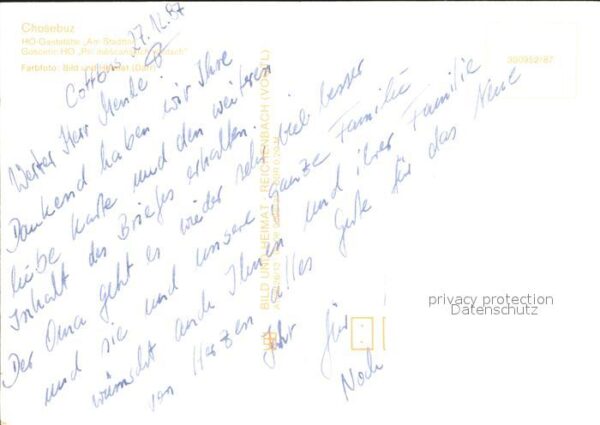 Chośebuz
HO-Gaststätte „Am Stadttor“
Farbfoto: Bild und Heimat
300952/87
Cottbus 27.12.87
Werter Herr Menke!
Dankend haben wir Ihre
liebe Karte und den weiteren
Inhalt des Briefes erhalten.
Der Oma geht es wieder sehr viel besser
und sie und unsere ganze Familie
wünscht auch Ihnen und ihrer Familie
von Herzen alles Gute für das Neue
Jahr für
Noch
BILD UND HEIMAT REICHENBACH (VOGTL)
privacy protection
Datenschutz